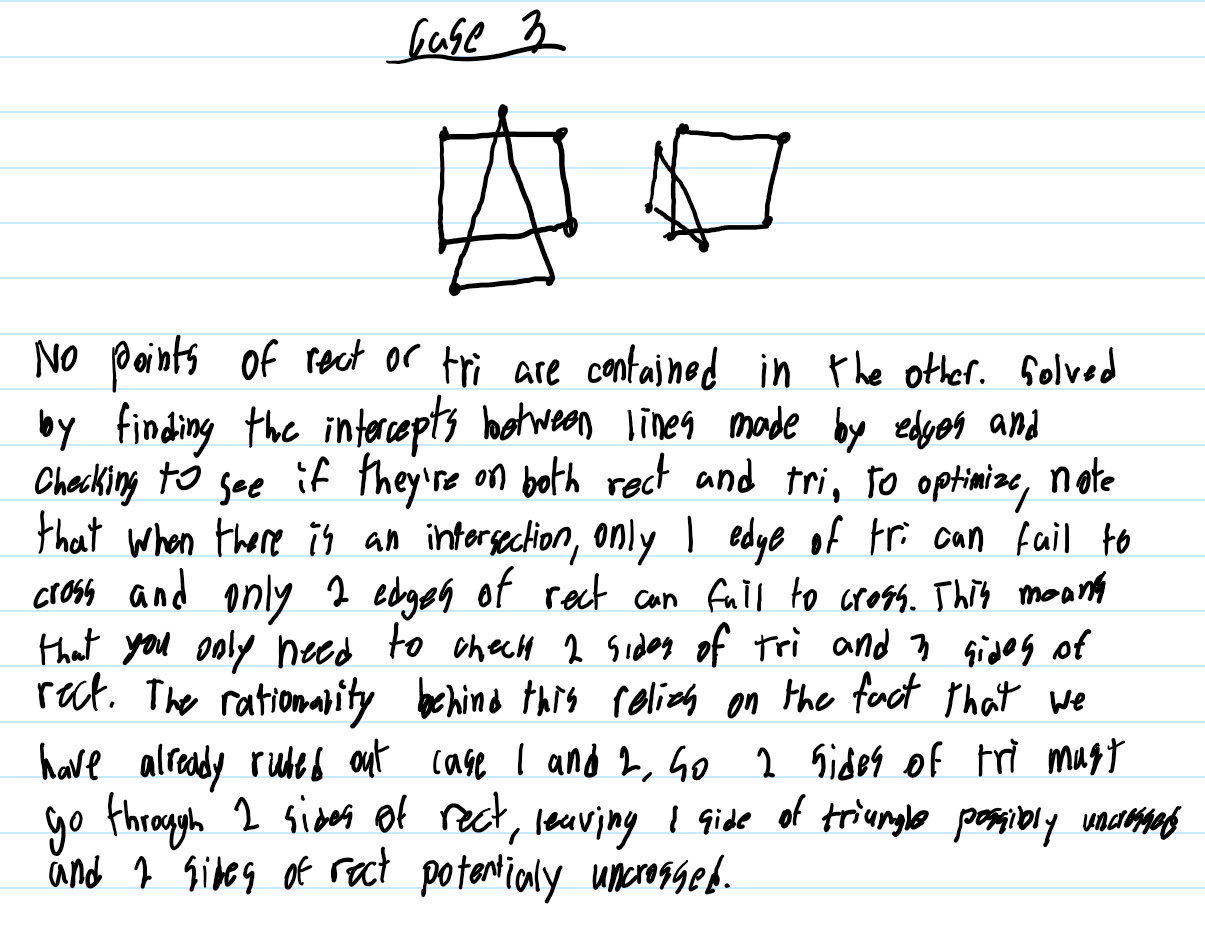 Case 3
No points of rect or tri are contained in the other. Solved
by finding the intercepts between lines made by edges and
Checking to see if they're on both rect and tri, to optimize, note
that when there is an intersection, only 1 edge of tri can fail to
cross and only 2 edges of rect can fail to cross. This means
that you only need to check 2 sides of tri and 3 sides of
rect. The rationality behind this relies on the fact that we
have already ruled out case 1 and 2, So 2 sides of tri must
go through 2 sides of rect, leaving 1 side of triangle possibly uncrossed
and 2 sides of rect potentialy uncrossed.